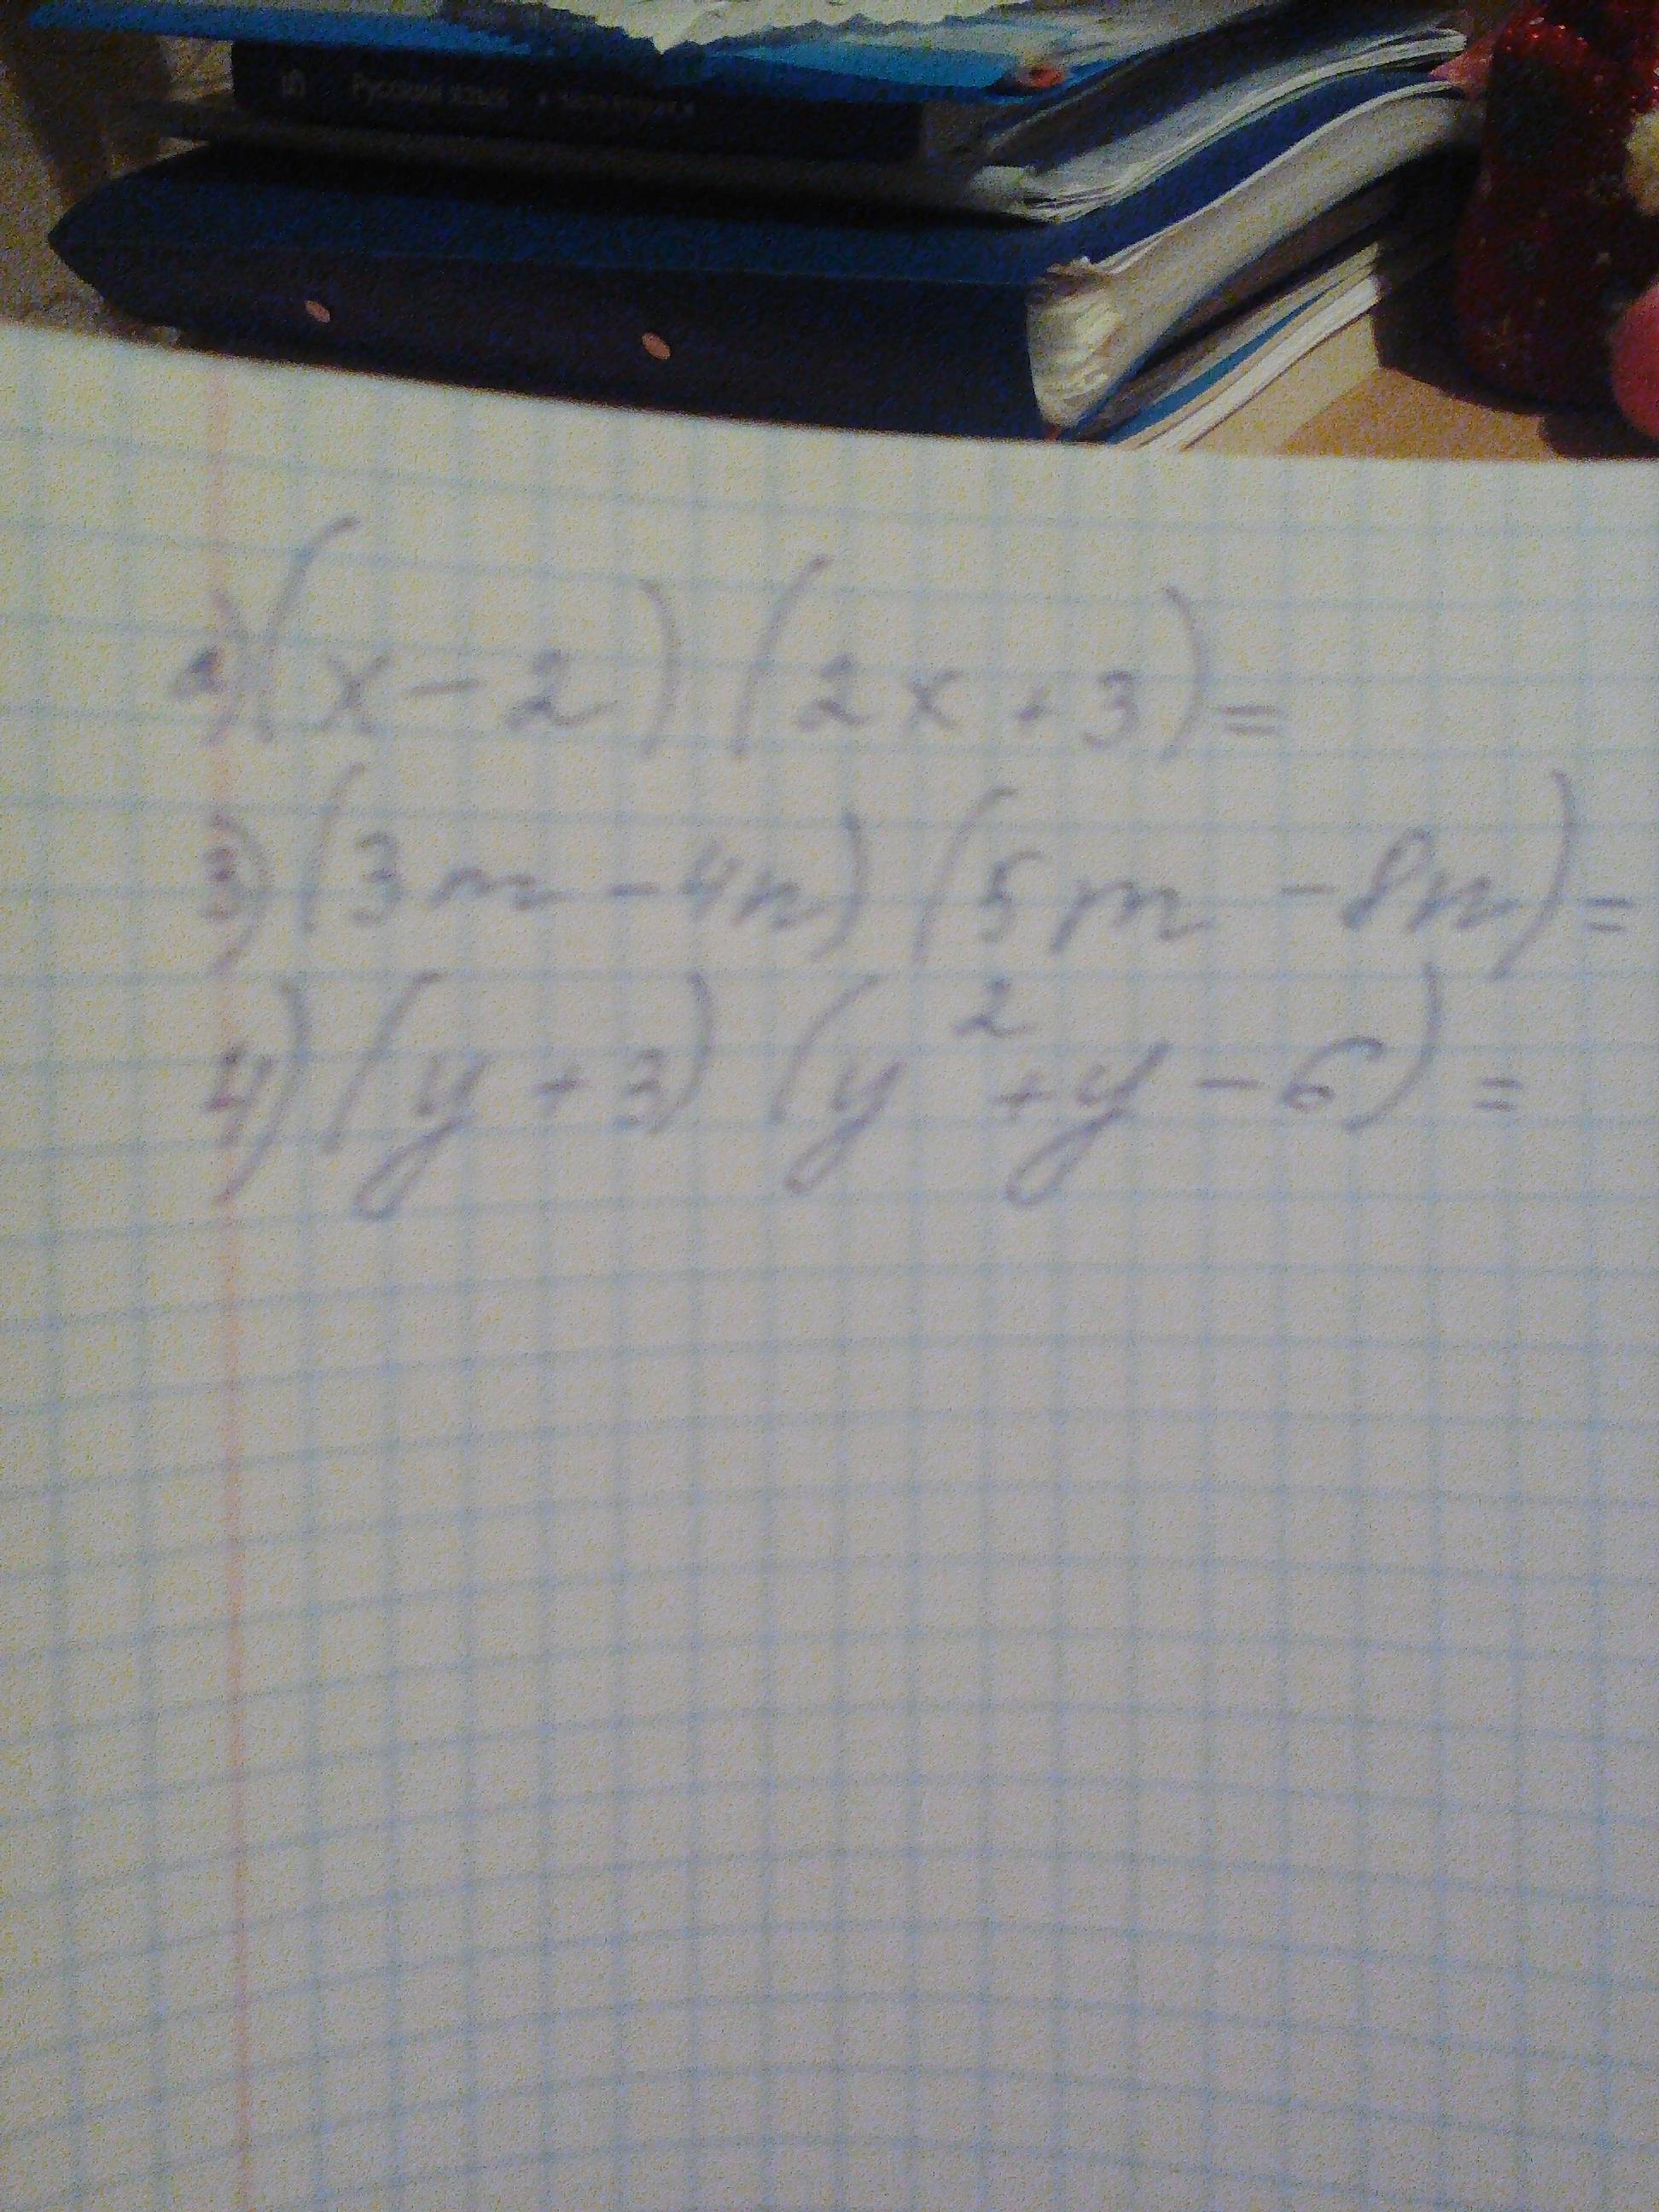 5 Русский язык
2) (x - 2) (2x + 3) =
3) (3m - 4n) (5m - 8n) =
4) (y + 3) (y² + y - 6) =